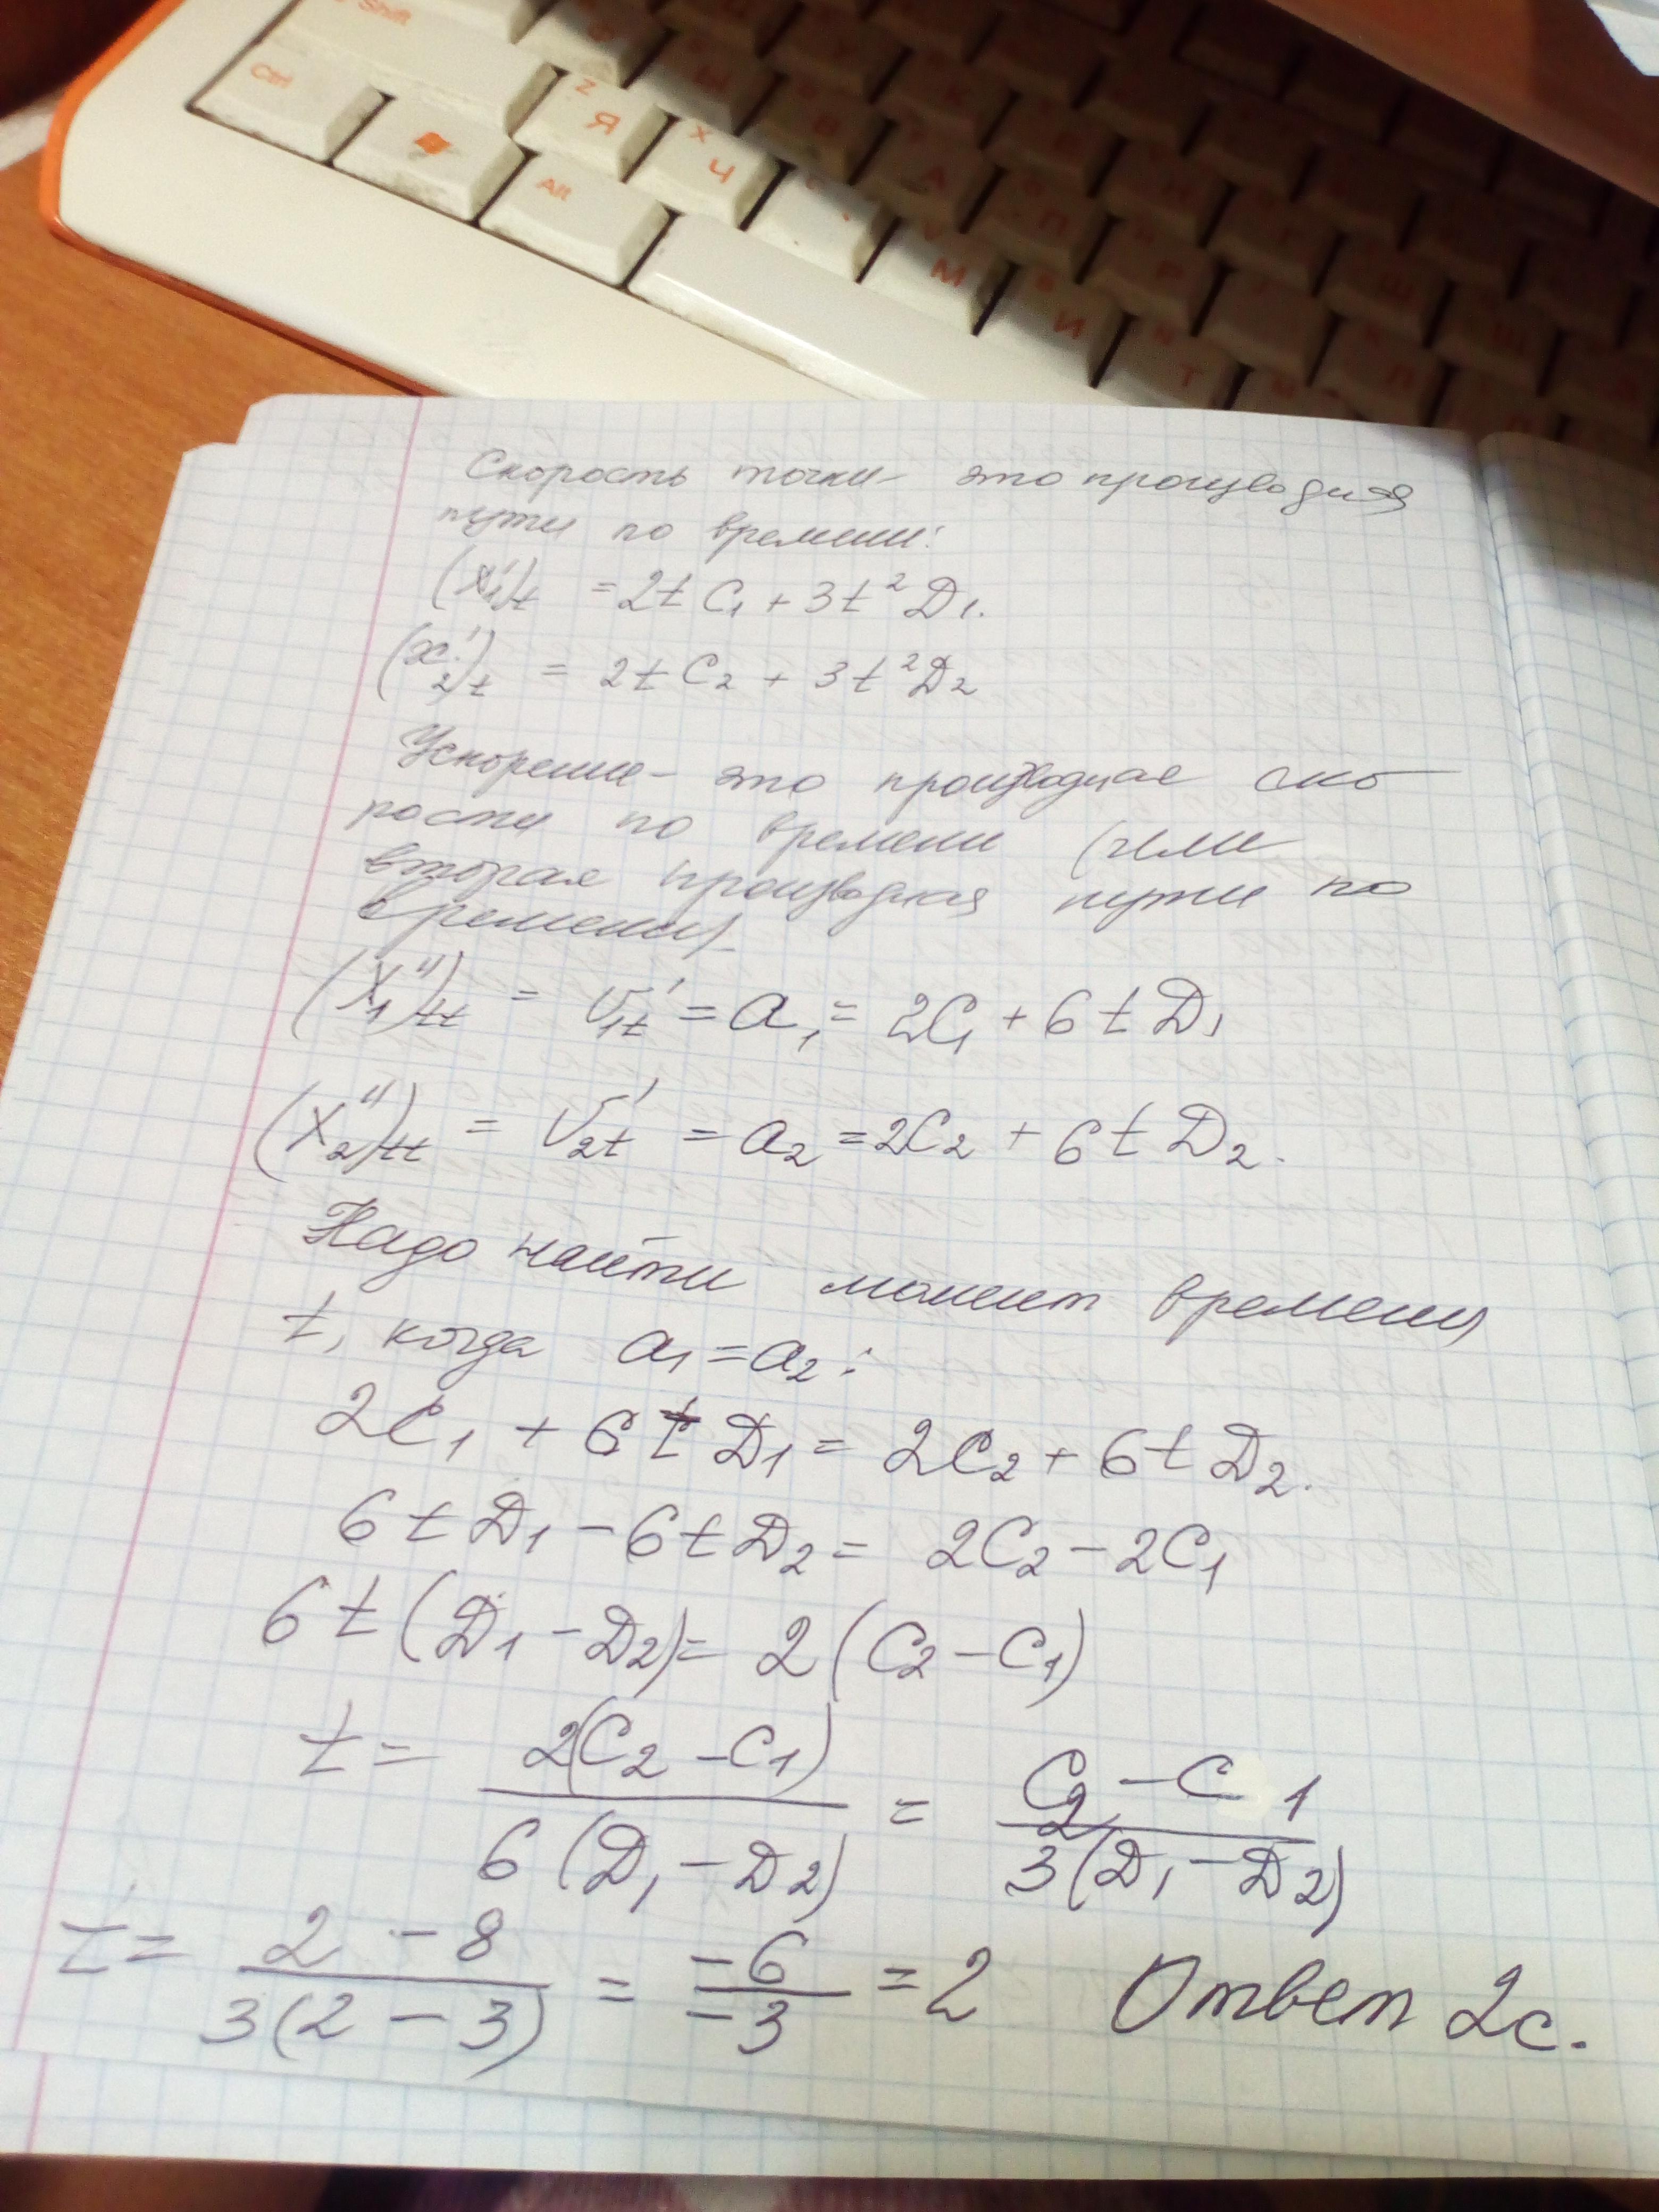 Shift
Ctrl
Z
Я
X
Ч
Alt
М
И
Т
Скорость точки - это производная
пути по времени:
(x₁')t = 2t C₁ + 3t² D₁.
(x₂')t = 2t C₂ + 3t² D₂
Ускорение - это производная ско-
рости по времени (или
вторая производная пути по
времени)
(X₁")tt = V₁t' = a₁ = 2C₁ + 6t D₁
(X₂")tt = V₂t' = a₂ = 2C₂ + 6t D₂.
Надо найти момент времени
t, когда a₁ = a₂:
2C₁ + 6t D₁ = 2C₂ + 6t D₂.
6t D₁ - 6t D₂ = 2C₂ - 2C₁
6t (D₁ - D₂) = 2 (C₂ - C₁)
t = 2(C₂ - C₁) / 6(D₁ - D₂) = C₂ - C₁ / 3(D₁ - D₂)
t = 2 - 8 / 3(2 - 3) = -6 / -3 = 2 Ответ 2с.